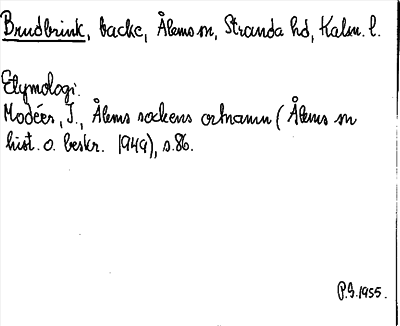 Brudbrink, backe, Ålems sn, Stranda hd, Kalm. l.
Etymologi.
Modéer, I., Ålems sockens ortnamn (Ålems sn
hist. o. beskr. 1949), s. 86.
P.G. 1955.